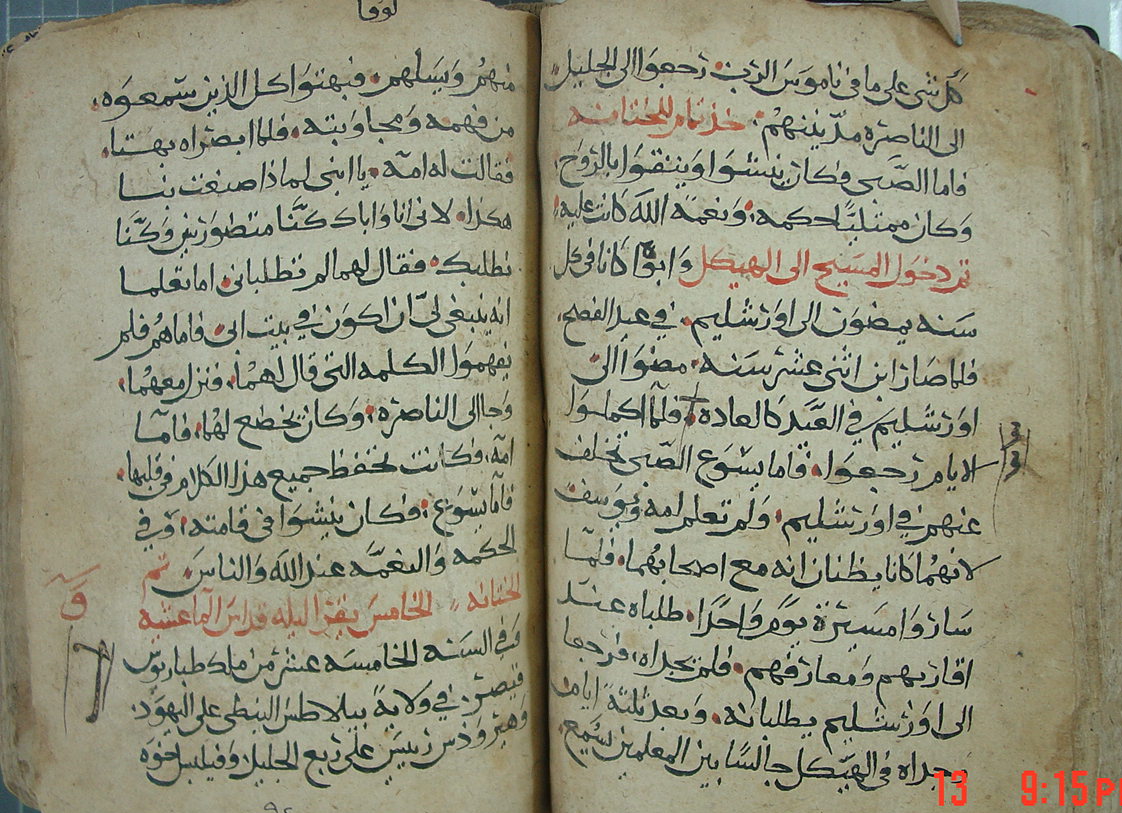 كل شي على ما في ناموس الرب، رجعوا الى الجليل
الى الناصره مدينتهم.
فاما الصبي فكان ينشوا ويتقوا بالروح،
وكان ممتليًا حكمه، ونعمه الله كانت عليه،
دخول المسيح الى الهيكل وابواه كانا في كل
سنه يمضون الى اورشليم. في عيد الفصح.
فلما صار ابن اثنى عشر سنه. مضوا الى
اورشليم في العيد كالعاده، فلما اكملوا
الايام رجعوا. فاما يسوع الصبى تخلف
عنهم في اورشليم. ولم تعلم امه ويوسف
لانهما كانا يظنان انه مع اصحابهما، فلما
ساروا مسيرة يوم واحدا، طلباه عند
اقاربهم ومعارفهم. فلم يجداه، فرجعا
الى اورشليم يطلبانه، وبعد ثلثة ايام
وجداه في الهيكل جالسًا بين المعلمين يسمع
لوقا
منهم ويسلهم، فبهتوا كل الذين سمعوه،
من فهمه ومجاوبته، فلما ابصراه بهتا،
فقالت له امه. يا ابنى لماذا صنعت بنا
هكذا، لانى انا واباك كنا متضورين وكنا
نطلبك، فقال لهما لم تطلبانى، اما تعلما
انه ينبغى لى ان اكون في بيت ابى، فاما هم فلم
يفهموا الكلمه التى قال لهما، فنزل معهما،
وجا الى الناصره، وكان يخضع لهما، فاما
امه، فكانت تحفظ جميع هذا الكلام في قلبها.
فاما يسوع، فكان ينشوا في قامته، وفي
الحكمه والنعمه عند الله والناس تم
الختانه الخامس يقرا ليله قداس
وفي السنه الخامسه عشر من ملك طباريوس
قيصر. في ولاية بيلاطس البنطى على اليهود.
وهيرودس رييس على ربع الجليل، وفيلبس اخوه
13 9:15